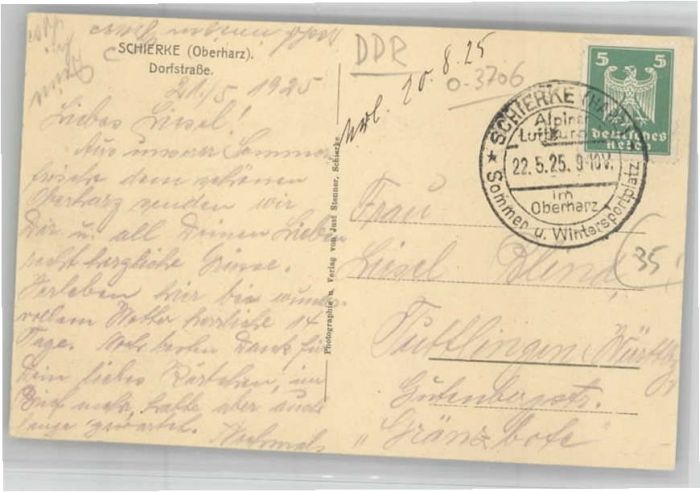 SCHIERKE (Oberharz).
Dorfstraße.
21/5 1925
Liebes Liesel!
Aus unserer Sommer
frische dem schönen
Oberharz senden wir
Dir u. all Deinen Lieben
recht herzliche Grüsse.
Verleben hier bei wunder
vollem Wetter herrliche 14
Tage. besten Dank für
Dein liebes Kärtchen, im
hatte aber auch
lange gewartet. Nochmals
Photographie u. Verlag von Just Stenner, Schierke
DDR
20.8.25
O-3706
5 5
Deutsches
Reich
SCHIERKE (HARZ)
Alpiner
Luftkurort
22.5.25. 9-10V.
im
Oberharz
Sommer u. Wintersportplatz
35
Frau
Liesel
Tuttlingen, Württbg
Gutenbergstr.
"Gränzbote"